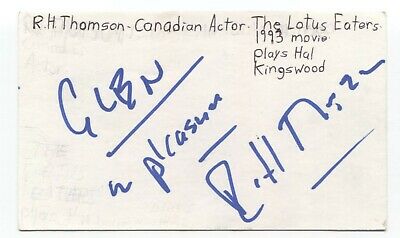 R.H. Thomson - Canadian Actor - The Lotus Eaters.
1993 movie
plays Hal
Kingswood
GLEN
a pleasure
RH Thomson